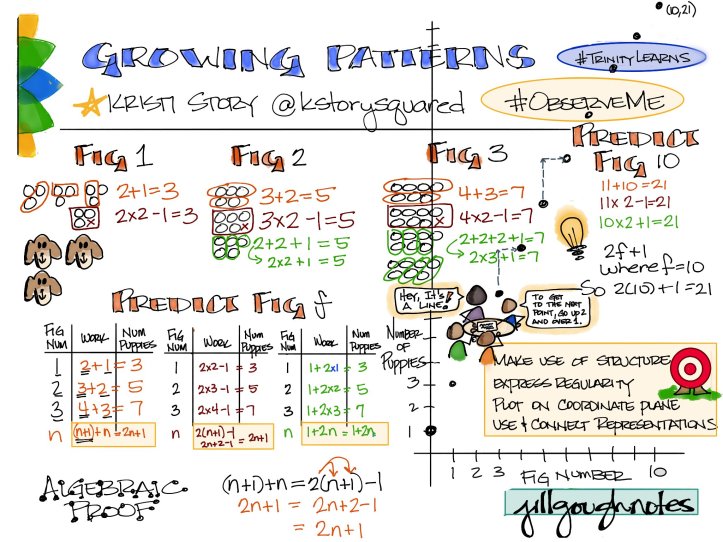 (10,21)
GROWING PATTERNS
#TRINITYLEARNS
KRISTI STORY @kstorysquared
#OBSERVEME
FIG 1
FIG 2
FIG 3
PREDICT
FIG 10
2+1=3
2x2-1=3
3+2=5
3x2-1=5
2+2+1=5
2x2+1=5
4+3=7
4x2-1=7
2+2+2+1=7
2x3+1=7
11+10=21
11x2-1=21
10x2+1=21
2f+1
where f=10
So 2(10)+1=21
HEY, IT'S
A LINE!
TO GET
TO THE NEXT
POINT, GO UP 2
AND OVER 1.
PREDICT FIG f
FIG NUM WORK NUM PUPPIES
1 2+1=3
2 3+2=5
3 4+3=7
n (n+1)+n=2n+1
FIG NUM WORK NUM PUPPIES
1 2x2-1=3
2 2x3-1=5
3 2x4-1=7
n 2(n+1)-1
2n+2-1=2n+1
FIG NUM WORK NUM PUPPIES
1 1+2x1=3
2 1+2x2=5
3 1+2x3=7
n 1+2n=1+2n
NUMBER
OF
PUPPIES
3
2
1
1 2 3 FIG NUMBER 10
MAKE USE OF STRUCTURE
EXPRESS REGULARITY
PLOT ON COORDINATE PLANE
USE & CONNECT REPRESENTATIONS
ALGEBRAIC
PROOF
(n+1)+n=2(n+1)-1
2n+1=2n+2-1
=2n+1
jillgoughnotes